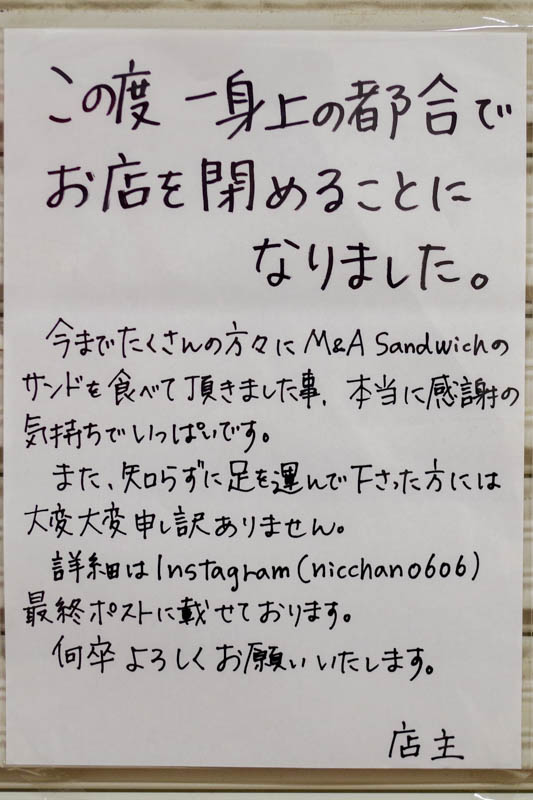 この度 一身上の都合で
お店を閉めることに
なりました。
今までたくさんの方々に M&A Sandwichの
サンドを食べて頂きました事、本当に感謝の
気持ちでいっぱいです。
また、知らずに足を運んで下さった方には
大変大変申し訳ありません。
詳細はInstagram(nicchan0606)
最終ポストに載せております。
何卒よろしくお願いいたします。
店主